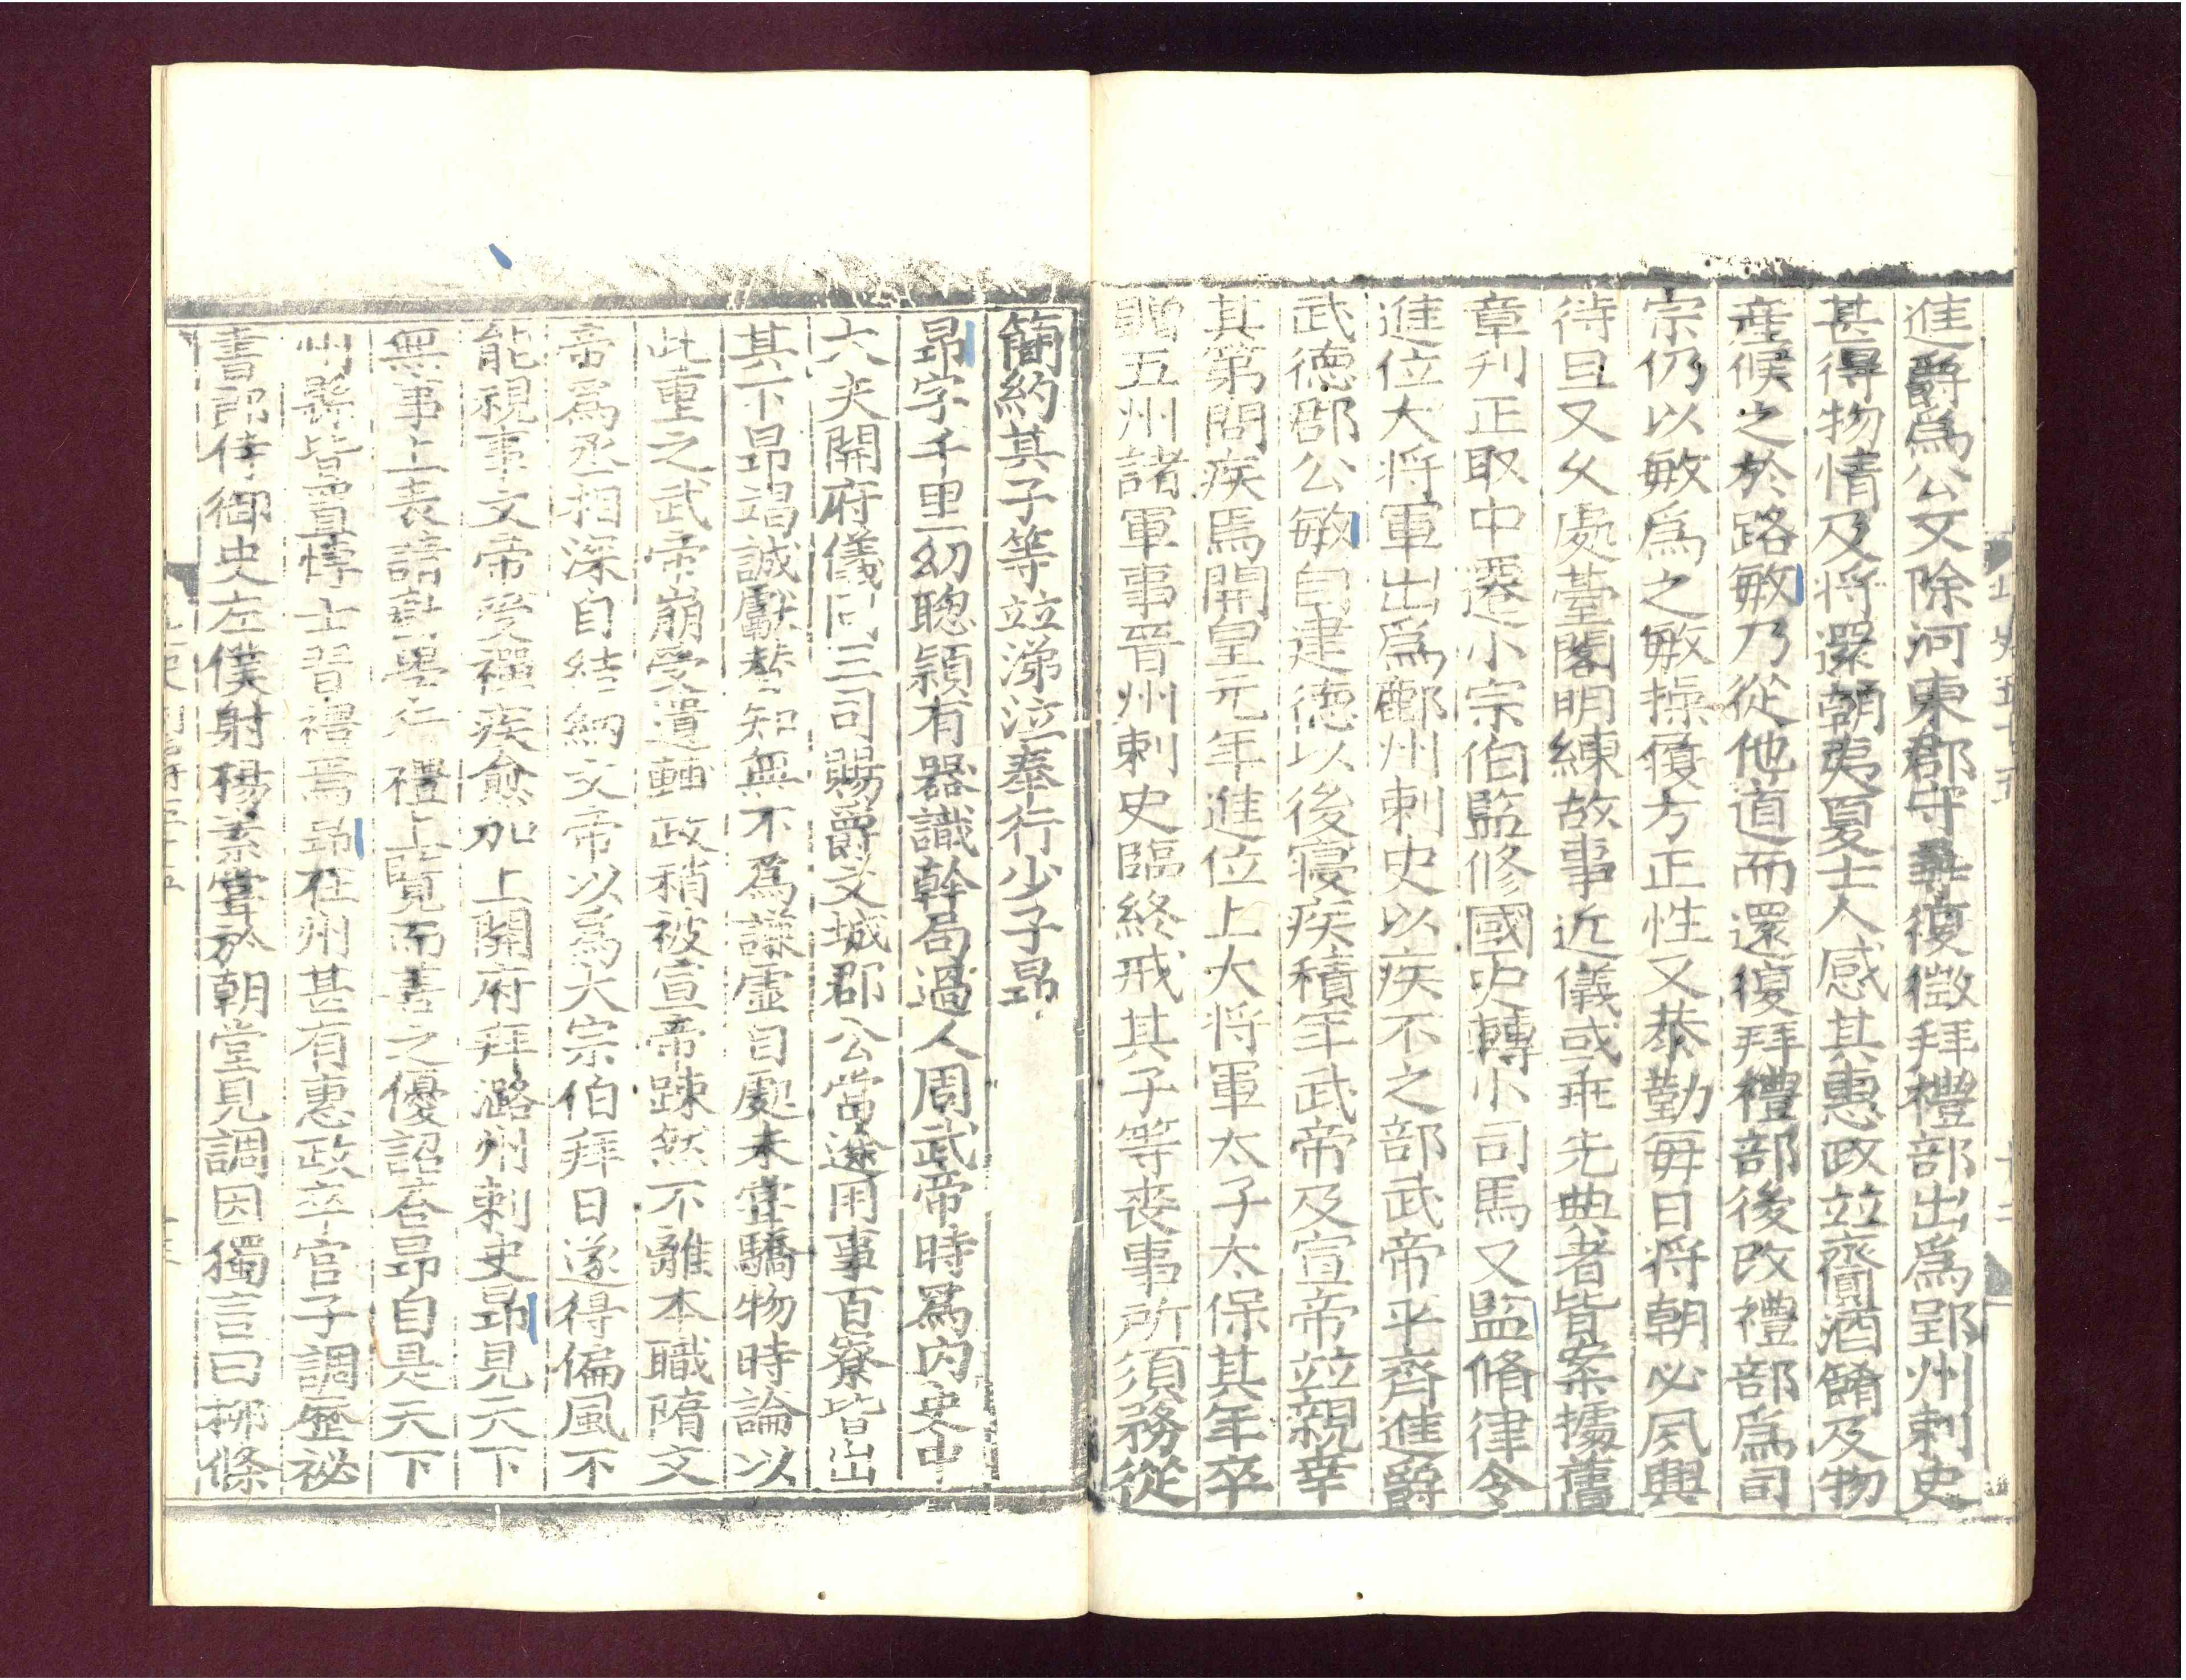 進爵爲公又除河東郡守尋復徵拜禮部出爲郢州刺史
甚得物情及将還朝夷夏士人感其惠政竝齎酒餚及物
産候之於路敏乃從他道而還復拜禮部後改禮部爲司
宗仍以敏爲之敏操履方正性又恭勤每日将朝必夙興
待旦又久處臺閣明練故事近儀或乖先典者皆案據舊
章刋正取中遷小宗伯監修國史轉小司馬又監脩律令
進位大将軍出爲鄜州刺史以疾不之部武帝平齊進爵
武德郡公敏自建德以後寝疾積年武帝及宣帝竝親幸
其第問疾焉開皇元年進位上大将軍太子太保其年卒
贈五州諸軍事晋州刺史臨終戒其子等喪事所須務從
簡約其子等竝涕泣奉行少子昂
昂字千里幼聰穎有器識幹局過人周武帝時爲内史中
大夫開府儀同三司賜爵文城郡公當途用事百寮皆出
其下昂竭誠獻替知無不爲謙虚自處未嘗驕物時論以
此重之武帝崩受遺輔政稍被宣帝踈然不離本職隋文
帝爲丞相深自結納文帝以爲大宗伯拜日遂得偏風不
能視事文帝受禪疾愈加上開府拜潞州刺史昂見天下
無事上表請勸學行禮上覽而善之優詔荅昂自是天下
州縣皆置博士習禮焉昂在州甚有惠政卒官子調歷祕
書郎侍御史左僕射楊素嘗於朝堂見調因獨言曰柳條